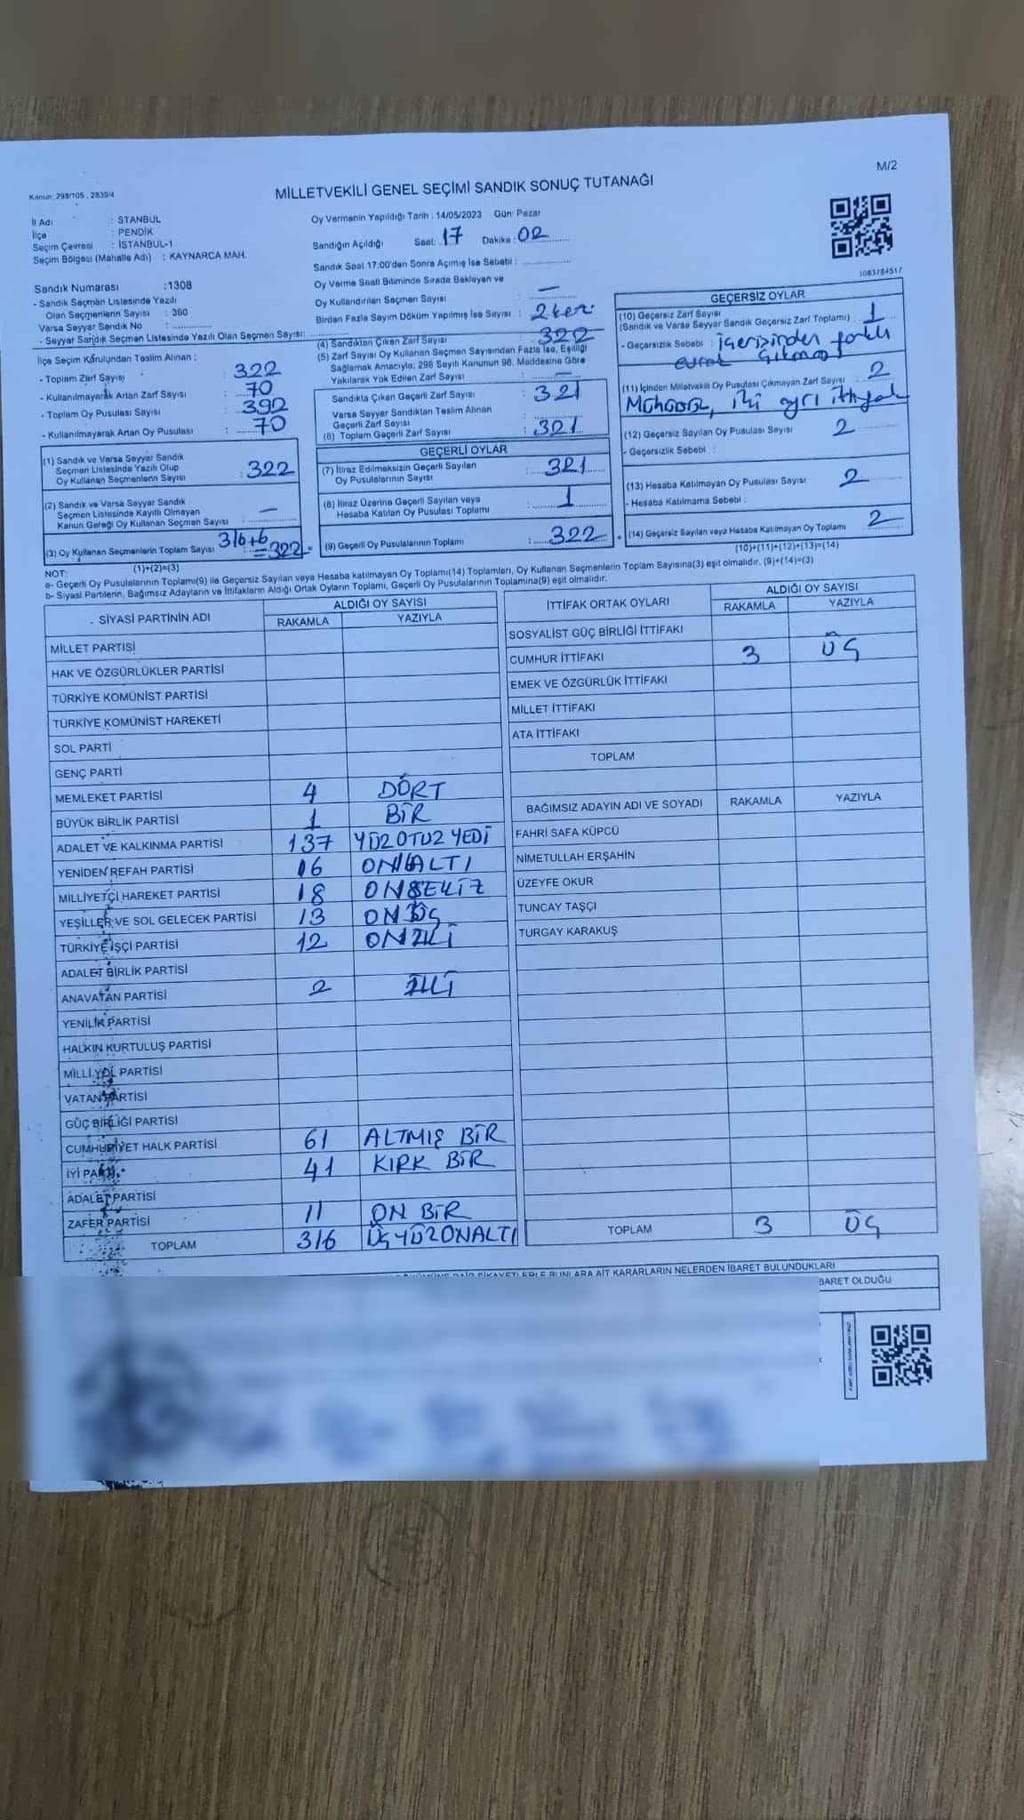 M/2
Kanun: 298/105 , 2839/4
MİLLETVEKİLİ GENEL SEÇİMİ SANDIK SONUÇ TUTANAĞI
İl Adı : STANBUL
İlçe : PENDİK
Seçim Çevresi : İSTANBUL-1
Seçim Bölgesi (Mahalle Adı) : KAYNARCA MAH.
Sandık Numarası :1308
- Sandık Seçmen Listesinde Yazılı
Olan Seçmenlerin Sayısı : 360
Varsa Seyyar Sandık No :
- Seyyar Sandık Seçmen Listesinde Yazılı Olan Seçmen Sayısı:
İlçe Seçim Kurulundan Teslim Alınan :
- Toplam Zarf Sayısı : 322
- Kullanılmayarak Artan Zarf Sayısı : 70
- Toplam Oy Pusulası Sayısı : 392
- Kullanılmayarak Artan Oy Pusulası : 70
(1) Sandık ve Varsa Seyyar Sandık
Seçmen Listesinde Yazılı Olup
Oy Kullanan Seçmenlerin Sayısı : 322
(2) Sandık ve Varsa Seyyar Sandık
Seçmen Listesinde Kayıtlı Olmayan
Kanun Gereği Oy Kullanan Seçmen Sayısı : —
(3) Oy Kullanan Seçmenlerin Toplam Sayısı : 316+6 =322
(1)+(2)=(3)
Oy Vermenin Yapıldığı Tarih : 14/05/2023 Gün: Pazar
Sandığın Açıldığı Saat: 17 Dakika : 02
Sandık Saat 17:00'den Sonra Açılmış İse Sebebi :
Oy Verme Saati Bitiminde Sırada Bekleyen ve
Oy Kullandırılan Seçmen Sayısı : —
Birden Fazla Sayım Döküm Yapılmış İse Sayısı : 2 kez
(4) Sandıktan Çıkan Zarf Sayısı : 322
(5) Zarf Sayısı Oy Kullanan Seçmen Sayısından Fazla İse, Eşitliği
Sağlamak Amacıyla, 298 Sayılı Kanunun 98. Maddesine Göre
Yakılarak Yok Edilen Zarf Sayısı : —
Sandıkta Çıkan Geçerli Zarf Sayısı : 321
Varsa Seyyar Sandıktan Teslim Alınan
Geçerli Zarf Sayısı :
(6) Toplam Geçerli Zarf Sayısı : 321
GEÇERLİ OYLAR
(7) İtiraz Edilmeksizin Geçerli Sayılan
Oy Pusulalarının Sayısı : 321
(8) İtiraz Üzerine Geçerli Sayılan veya
Hesaba Katılan Oy Pusulası Toplamı : 1
(9) Geçerli Oy Pusulalarının Toplamı : 322
1083784517
GEÇERSİZ OYLAR
(10) Geçersiz Zarf Sayısı
(Sandık ve Varsa Seyyar Sandık Geçersiz Zarf Toplamı) : 1
- Geçersizlik Sebebi : içerisinden farklı
evrak çıkması
(11) İçinden Milletvekili Oy Pusulası Çıkmayan Zarf Sayısı : 2
iki ayrı ittifak
(12) Geçersiz Sayılan Oy Pusulası Sayısı : 2
- Geçersizlik Sebebi :
(13) Hesaba Katılmayan Oy Pusulası Sayısı : 2
- Hesaba Katılmama Sebebi :
(14) Geçersiz Sayılan veya Hesaba Katılmayan Oy Toplamı : 2
(10)+(11)+(12)+(13)=(14)
NOT:
a- Geçerli Oy Pusulalarının Toplamı(9) ile Geçersiz Sayılan veya Hesaba katılmayan Oy Toplamı(14) Toplamları, Oy Kullanan Seçmenlerin Toplam Sayısına(3) eşit olmalıdır. (9)+(14)=(3)
b- Siyasi Partilerin, Bağımsız Adayların ve İttifakların Aldığı Ortak Oyların Toplamı, Geçerli Oy Pusulalarının Toplamına(9) eşit olmalıdır.
SİYASİ PARTİNİN ADI ALDIĞI OY SAYISI
RAKAMLA YAZIYLA
MİLLET PARTİSİ
HAK VE ÖZGÜRLÜKLER PARTİSİ
TÜRKİYE KOMÜNİST PARTİSİ
TÜRKİYE KOMÜNİST HAREKETİ
SOL PARTİ
GENÇ PARTİ
MEMLEKET PARTİSİ 4 DÖRT
BÜYÜK BİRLİK PARTİSİ 1 BİR
ADALET VE KALKINMA PARTİSİ 137 YÜZOTUZ YEDİ
YENİDEN REFAH PARTİSİ 16 ONALTI
MİLLİYETÇİ HAREKET PARTİSİ 18 ONSEKİZ
YEŞİLLER VE SOL GELECEK PARTİSİ 13 ONÜÇ
TÜRKİYE İŞÇİ PARTİSİ 12 ONİKİ
ADALET BİRLİK PARTİSİ
ANAVATAN PARTİSİ 2 İKİ
YENİLİK PARTİSİ
HALKIN KURTULUŞ PARTİSİ
MİLLİ YOL PARTİSİ
VATAN PARTİSİ
GÜÇ BİRLİĞİ PARTİSİ
CUMHURİYET HALK PARTİSİ 61 ALTMIŞ BİR
İYİ PARTİ 41 KIRK BİR
ADALET PARTİSİ
ZAFER PARTİSİ 11 ON BİR
TOPLAM 316 ÜÇYÜZONALTI
İTTİFAK ORTAK OYLARI ALDIĞI OY SAYISI
RAKAMLA YAZIYLA
SOSYALİST GÜÇ BİRLİĞİ İTTİFAKI
CUMHUR İTTİFAKI 3 ÜÇ
EMEK VE ÖZGÜRLÜK İTTİFAKI
MİLLET İTTİFAKI
ATA İTTİFAKI
TOPLAM
BAĞIMSIZ ADAYIN ADI VE SOYADI RAKAMLA YAZIYLA
FAHRİ SAFA KÜPCÜ
NİMETULLAH ERŞAHİN
ÜZEYFE OKUR
TUNCAY TAŞÇI
TURGAY KARAKUŞ
TOPLAM 3 ÜÇ
BUNLARA AİT KARARLARIN NELERDEN İBARET BULUNDUKLARI
BARET OLDUĞU